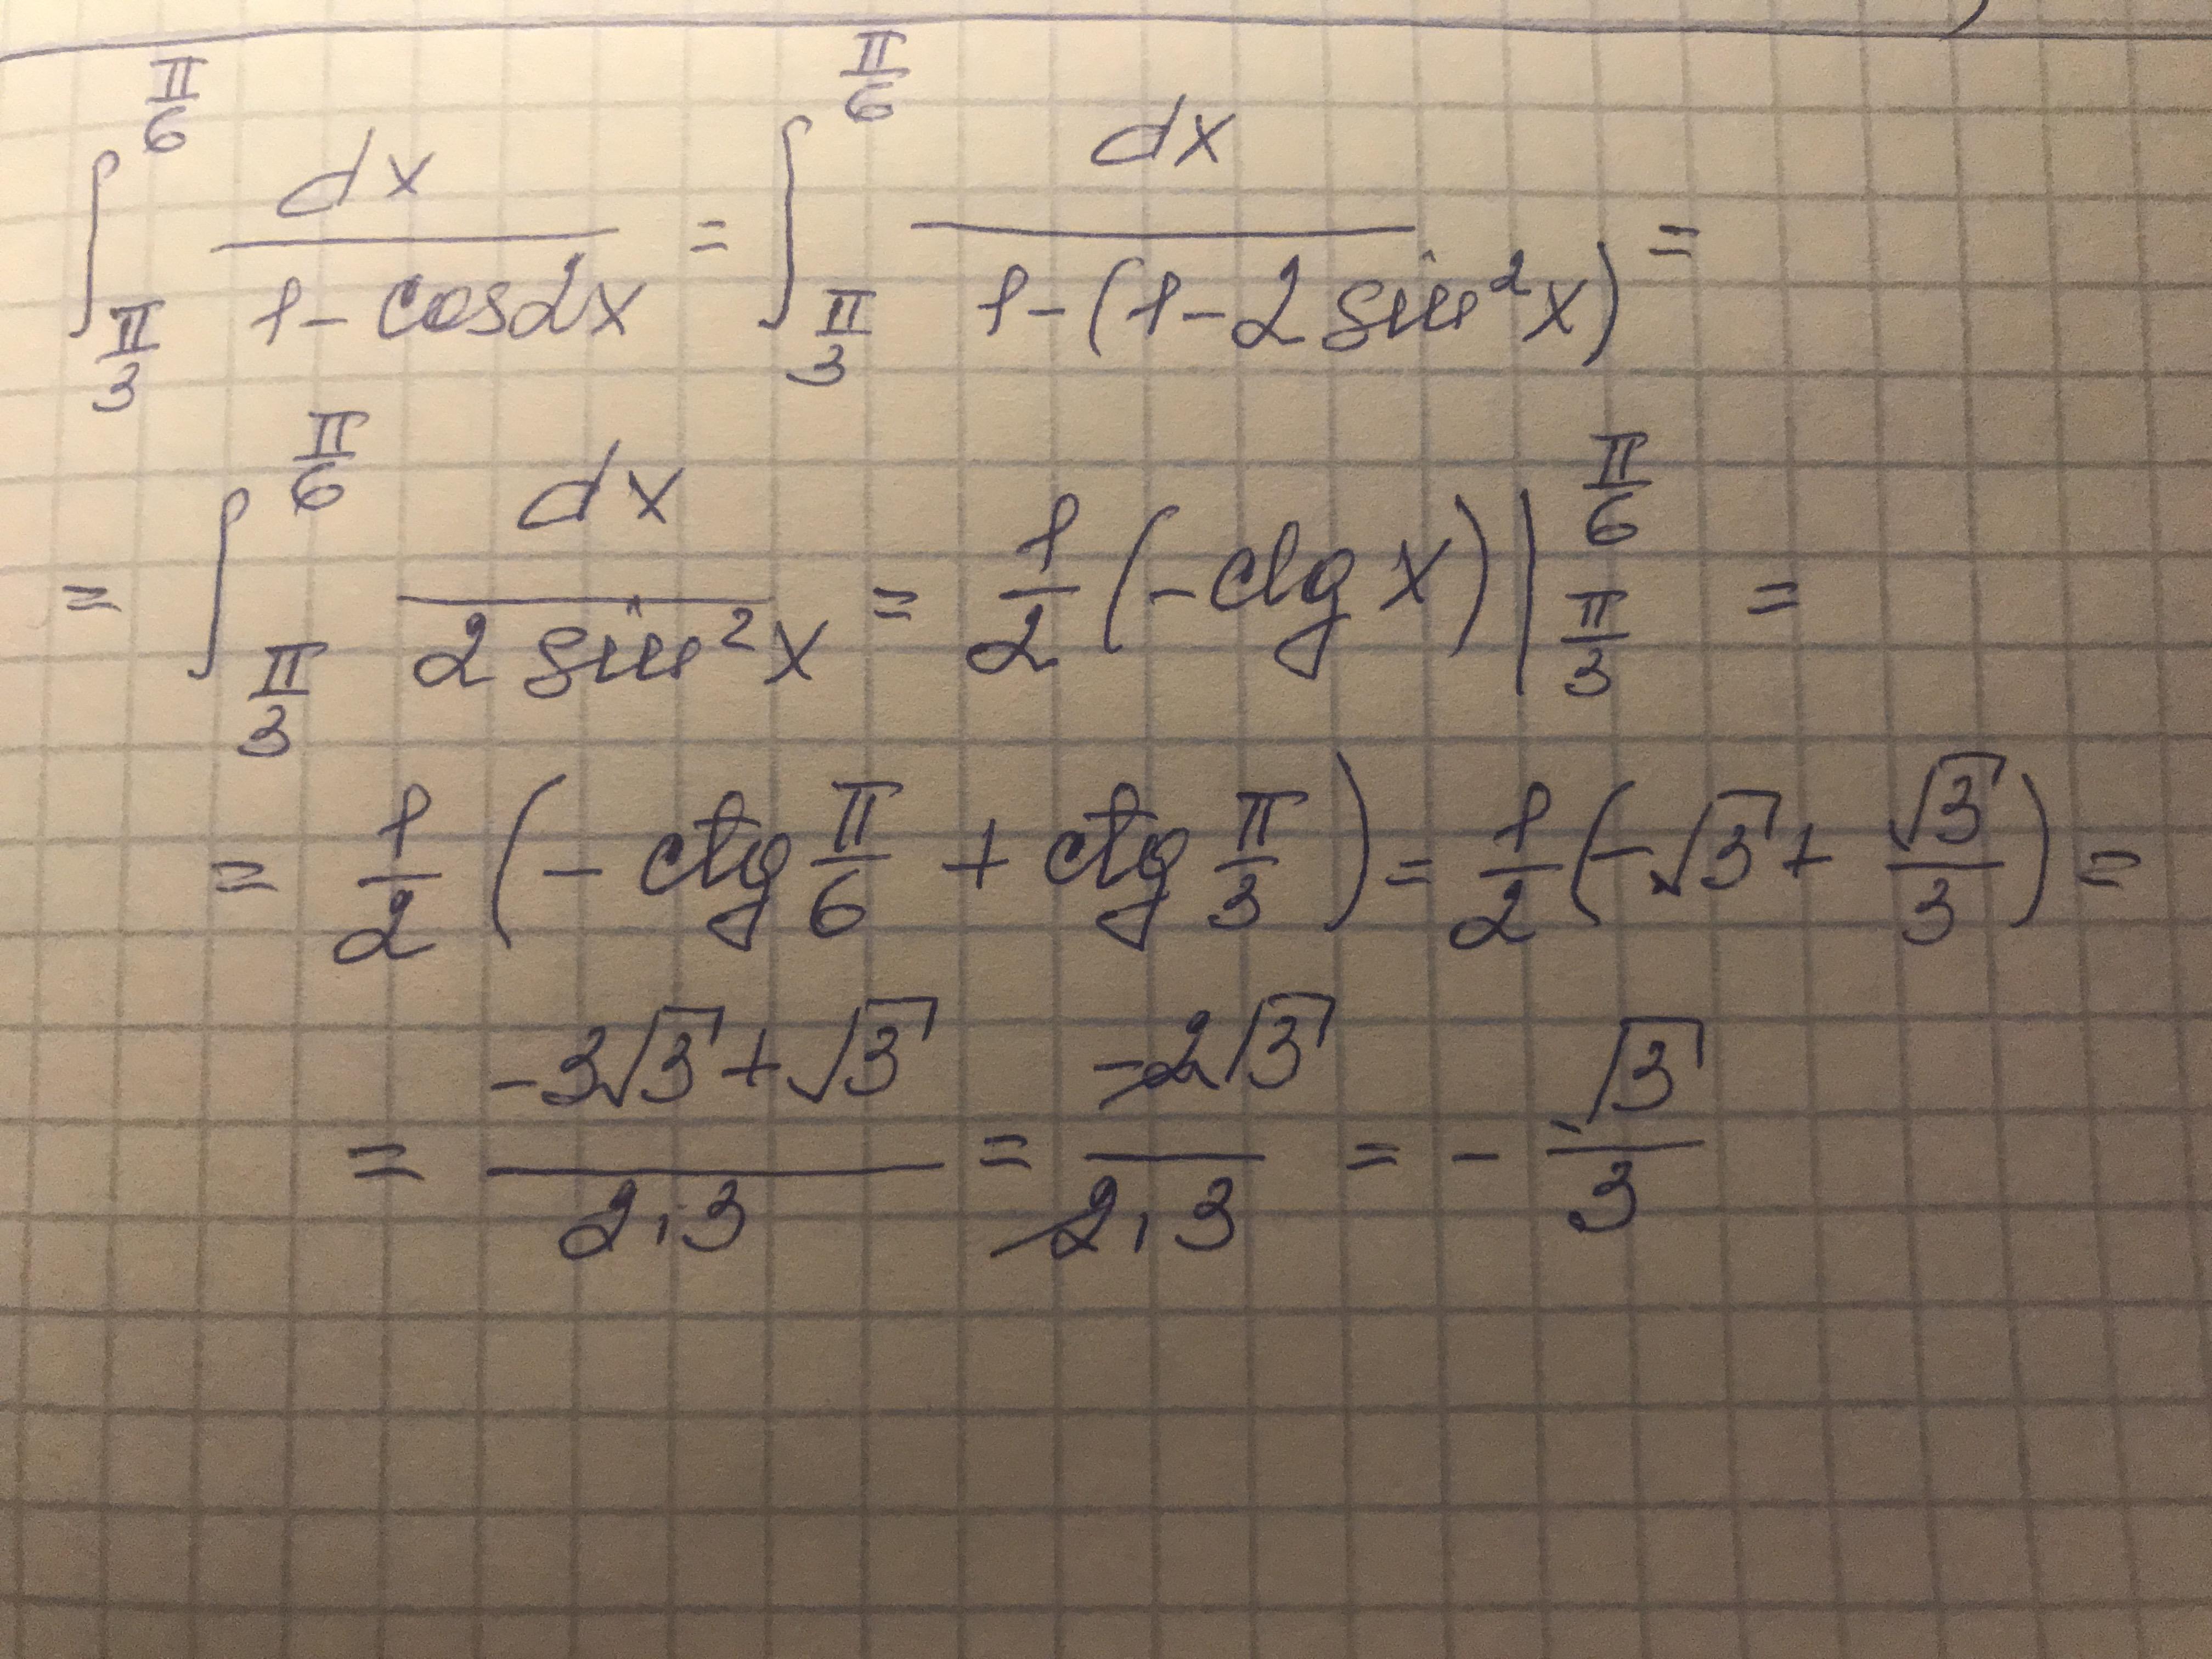 ∫_{π/3}^{π/6} dx/(1-cos2x) = ∫_{π/3}^{π/6} dx/(1-(1-2sin²x)) =
= ∫_{π/3}^{π/6} dx/(2sin²x) = 1/2(-ctg x)|_{π/3}^{π/6} =
= 1/2(-ctg π/6 + ctg π/3) = 1/2(-√3 + √3/3) =
= (-3√3+√3)/(2·3) = (-2√3)/(2·3) = -√3/3